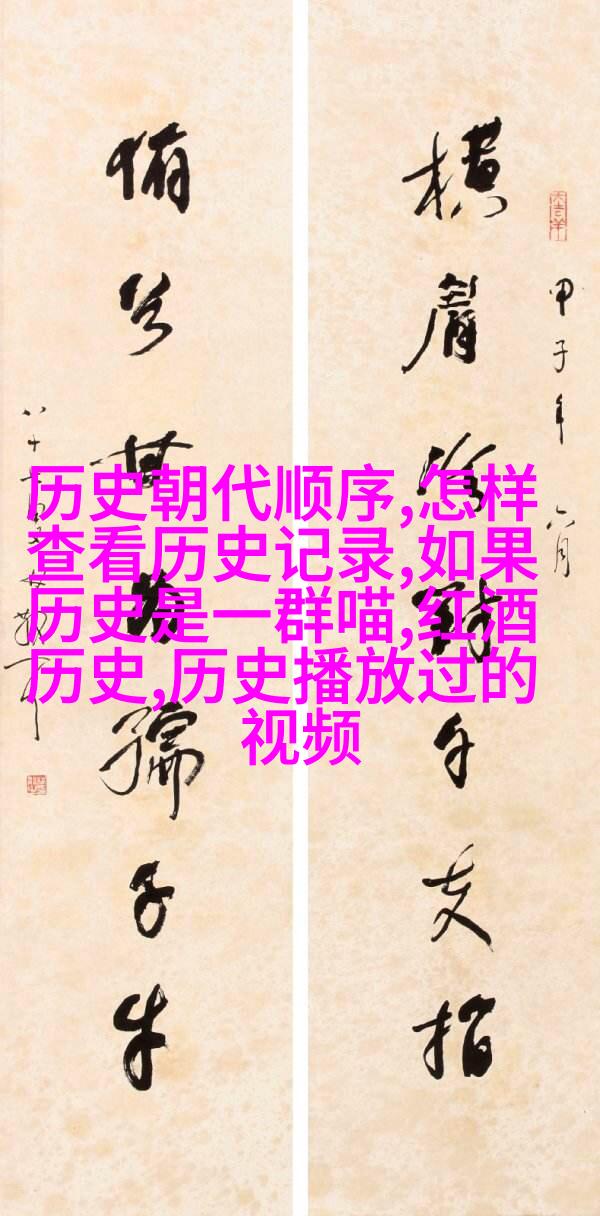 甲子年六月
橫眉冷對千夫指
俯首甘為孺子牛
历史朝代顺序,怎样
查看历史记录,如果
历史是一群喵,红酒
历史,历史播放过的
视频